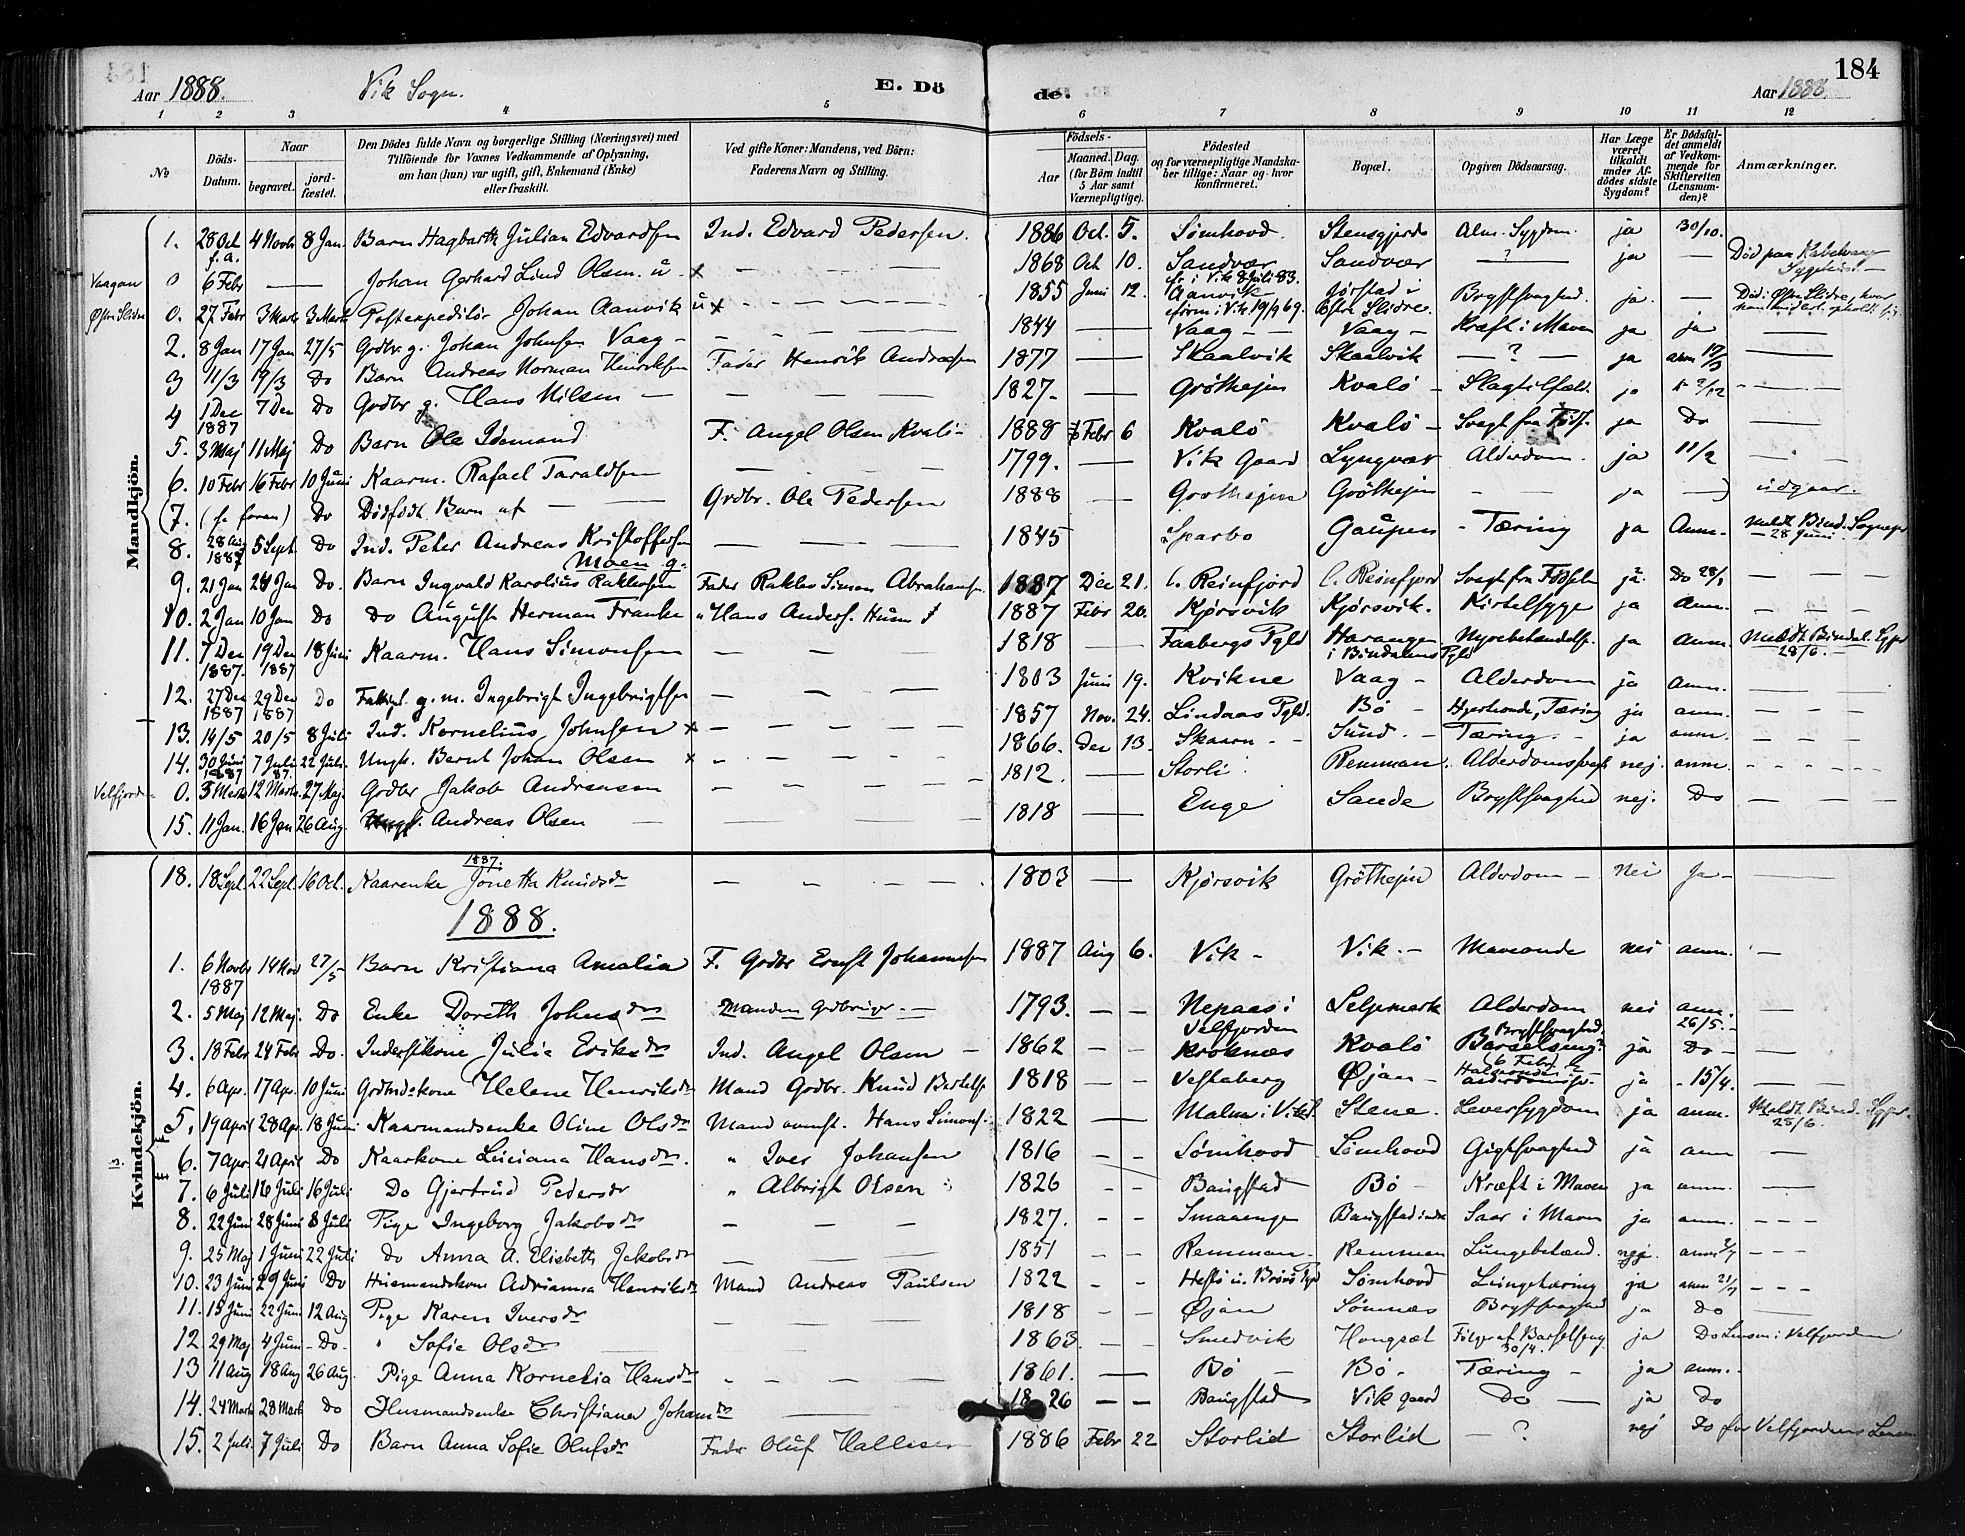 Aar 1888. Vik Sogn. E. Dö de. Aar 1888. 184
1 2 3 4 5 6 7 8 9 10 11 12
No
Döds-Datum.
Naar begravet. jordfæstet.
Den Dödes fulde Navn og borgerlige Stilling (Næringsvei) med Tilföiende for Voxnes Vedkommende af Oplysning, om han (hun) var ugift, gift, Enkemand (Enke) eller fraskilt.
Ved gifte Koner: Mandens, ved Börn: Faderens Navn og Stilling.
Födsels- Aar Maaned. Dag. (for Börn indtil 5 Aar samt Værnepligtige).
Födested og for værnepligtige Mandskaber tillige: Naar og hvor konfirmeret.
Bopæl.
Opgiven Dödsaarsag.
Har Læge været tilkaldt under Afdödes sidste Sygdom?
Er Dödsfaldet anmeldt af Vedkommende for Skifteretten (Lensmanden)?
Anmærkninger.
Mandkjön.
1. 28 Oct f.a. 4 Novbr 8 Jan. Barn Hagbarth Julian Edvardsen Ind. Edvard Pedersen. 1886 Oct. 5. Sömhovd. Stensgjerde Alm. Sygdom. ja 30/10.
Vaagan 0 6 Febr — Johan Gerhard Lind Olsen. u. x — — 1868 Oct 10. Sandvær Sandvær — ? — ja — Död paa Kabelvaag Sygehus. —
Østre Slidre 0. 27 Febr 3 Marts 3 Marts Postexpeditör Johan Aanvik u x — — 1855 Juni 12. Aanvik Østre Slidre. Brystsvaghed. ja. — Död i Østre Slidre, hvor
2. 8 Jan 17 Jan 27/5 Grdbr. g. Johan Johnsen Vaag — 1844 — Vaag — Vaag — Kræft i Maven ja ja —
3 11/3 19/3 Do Barn Andreas Norman Henriksen Fader Henrik Andreasen 1877 — Skaalvik Skaalvik — ? — ja anm 17/3 —
4 1 Dec 1887 7 Dec Do Grdbr g. Hans Nilsen — 1827 — Gröthejen Kvalö — Slagtilfæld. ja
5. 3 Maj 11 Maj Do Barn Ole Edemand F. Angel Olsen Kvalö — 1888 Febr 6 Kvalö Kvalö — Svagt fra Föds. ja Do —
6. 10 Febr 16 Febr 10 Juni Kaarm. Rafael Taraldsen — 1799. — Vik Gaard Lyngvær Alderdom. ja 11/2
(7. (se foran) Do Dödfödt Barn af — Grdbr. Ole Pedersen 1888 — Grothejen Gröthejen — — ja —) udgaar.
8. 28 Aug 1887 5 Sept. Do Ind. Peter Andreas Kristoffersen Moen g. — 1845 Sparbo Gaupen — Tæring ja Anm. meldt Bind. Sognepr — 28 Juni
9. 21 Jan 24 Jan Do. Barn Ingvald Karolius Raklevsen Fader Raklev Simon Abrahamsen 1887 Dec 21. l. Reinfjord l. Reinfjord Svagt fra Födselen ja. Do 28/1 —
10. 2 Jan 10 Jan Do Do August Herman Franke " Hans Anders. Husm f 1887 Febr 20. Kjörsvik Kjörsvik. Kirtelsyge ja Anm.
11. 7 Dec 1887. 19 Dec 1887 18 Juni Kaarm. Hans Simonsen — 1818 — Faabergs Pgld Harangen i Bindalens Pgld Nyrebetændelse. ja Anm. Meldt Bindal. Sgpr 28/6.
12. 27 Dec 1887 29 Dec 1887 Do Fattigl. g. m. Ingebrigt Ingebrigtsen — 1803 Juni 19. Kvikne Vaag — Alderdom ja Anm. —
13. 14/5 20/5 8 Juli Ind. Kornelius Johnsen x — 1857 Nov. 24. Lindaas Pgld. Bö — Hjerteonde, Tæring ja anm. —
14. 30 Juni 1887 7 Juli 87. 22 Juli. Ungk. Bernt Johan Olsen x — 1866. Dec 13. Skaarn — Sund. — Tæring. — ja anm. —
Velfjorden 0. 3 Marts 12 Marts. 27 Maj. Grdbr Jakob Andreasen — 1812. — Storli Remman. Alderdomssvagh nej. anm. —
15. 11 Jan. 16 Jan 26 Aug. Ungk. Andreas Olsen — 1818 — Enge Sande Brystsvaghed nej. Do —
Kvindekjön.
1887.
18. 18 Sept. 22 Sept. 16 Oct. Kaarenke Joneth Knudsdr — 1803 — Kjørsvik Gröthejen Alderdom — nei Ja —
1888.
1. 6 Novbr 1887 14 Nov 27/5 Barn Kristiana Amalia F. Grdbr Ernst Johannesen 1887 Aug 6. Vik — Vik. — Maveonde nei anm. —
2. 5 Maj 12 Maj. Do Enke Doreth Johnsdr Manden Grdbruger. — 1793. — Nepaas i Velfjorden Seljemark Alderdom nei anm. 26/5. —
3. 18 Febr 24 Febr Do. Inderstkone Julie Eriksdr Ind. Angel Olsen — 1862 — Kroknæs Kvalö Brystsvaghed. Barselseng? 6 Febr. ja Do — —
4. 6 Apr. 17 Apr. 10 Juni Grdmdskone Helene Henriksdr Mand Grdbr. Knud Bertels. 1818 — Vestaberg Øjan — ja — 15/4. —
5. 19 April 28 Apr. 18 Juni Kaarmandsenke Oline Olsdr Mand Hans Simons. 1822 — Malm i Stene. Leversygdom ja anm. Meldt Bind. Sgpr. 28/6.
6. 7 Apr. 21 April Do Kaarkone Luciana Hansdr. " Iver Johansen 1816 — Sömhovd Sömhovd Gigtsvaghed ja anm —
7. 6 Juli 16 Juli 16 Juli Do Gjertrud Pedersdr " Albrigt Olsen 1826 — Baugstad Bö — Kræft i Maven ja anm. —
8. 22 Juni 28 Juni 8 Juli Pige Ingeborg Jakobsdr — 1827. — Smaaenge Baugstad indre Saar i Maven ja anm. —
9. 25 Maj 1 Juni 22 Juli Do Anna A. Elisbeth Jakobsdr — 1851 — Remman. Remman Lungebetænd. nej. anm 2/7 —
10. 23 Juni 29 Juni Do Husmandskone Adrianna Henriksdr Mand Andreas Paulsen 1822 — Hestö u. Brönö Pgd Sömhovd Lungetæring ja anm 21/7 —
11. 15 Juni 22 Juni 12 Aug Pige Karen Iversdr — 1818 — Øjan Sömnæs Brystsvaghed ja Do —
12 29 Maj 4 Juni — Do — " Sofie Olsdr — 1863. — Smedvik Hongsæt Fölge af Barselseng 30/4. ja Do Lensm. i Velfjorden
13 11 Aug 18 Aug 26 Aug. Pige Anna Kornelia Hansdr — 1861. — Bö — Bö — Tæring — ja anm. —
14. 24 Marts 28 Marts Do Husmandsenke Christiane Johansdr — 1826 — Baugstad Vik gaard Do — ja Do
15. 2 Juli. 7 Juli Do Barn Anna Sofie Olufsdr Fader Oluf Hallesen 1886 Febr 22 Storlid Storlid — ? nej Do for Velfjordens Lensm